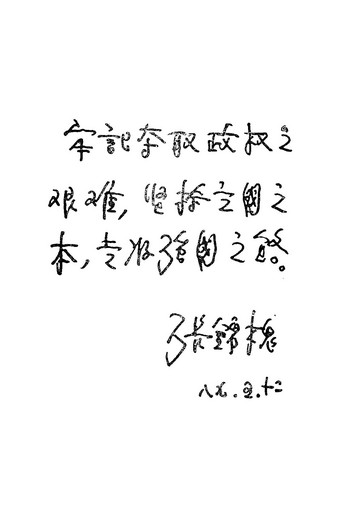 牢記夺取政权之
艰难,坚持立國之
本,走強國之路。
張錦槐
八九.五.十二